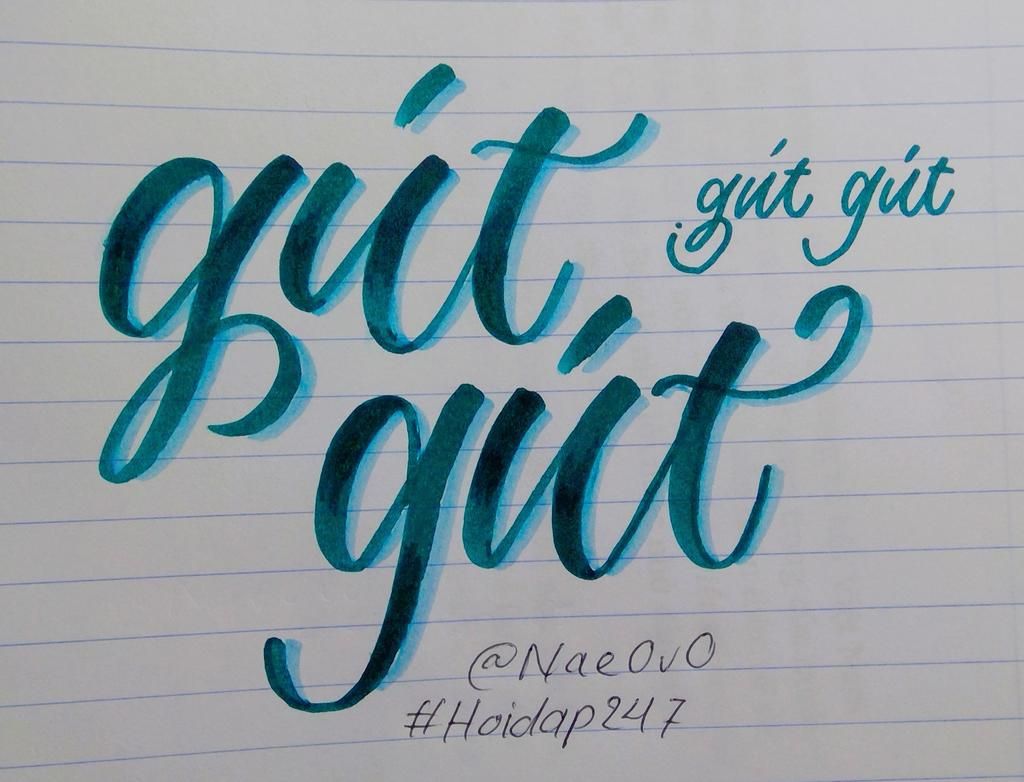 gút
gút gút
gút
@NaeOvO
#Hoidap247